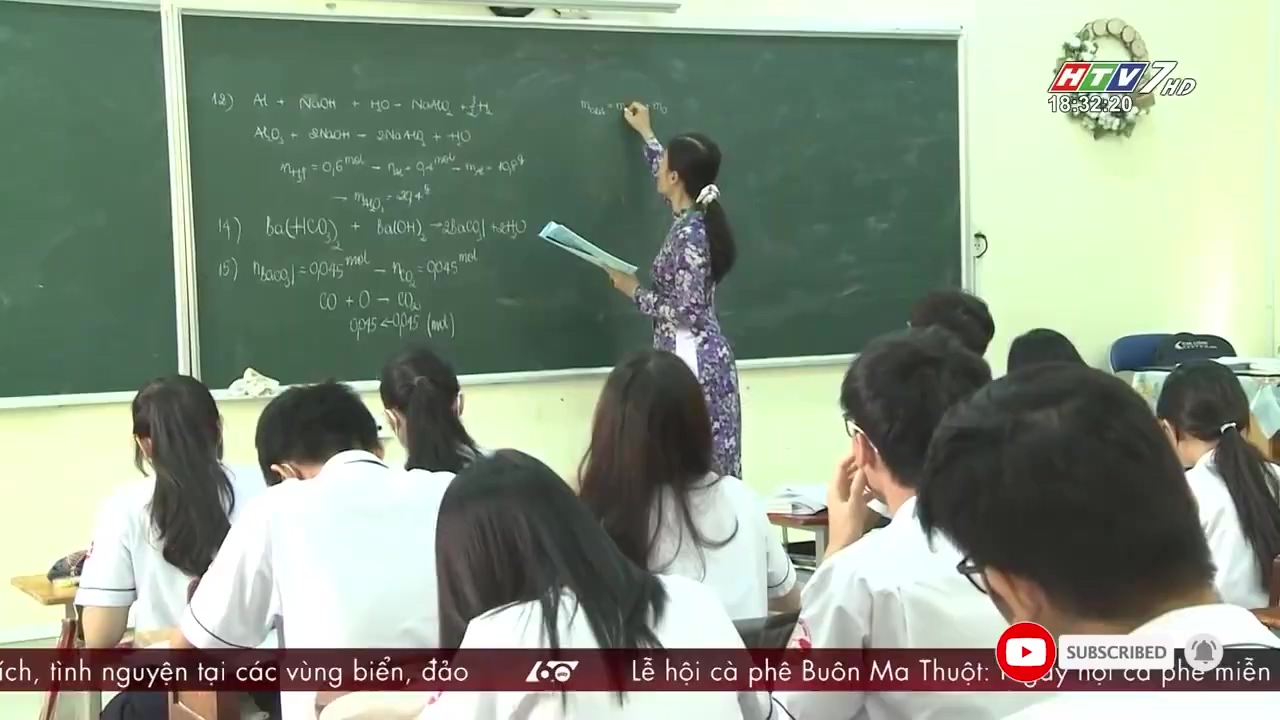 12) Al + NaOH + H2O → NaAlO2 + 3/2 H2
Al2O3 + 2NaOH → 2NaAlO2 + H2O
nH2 = 0,6 mol → nAl = 0,4 mol → mAl = 10,8g
→ mAl2O3 = 20,4g
14) Ba(HCO3)2 + Ba(OH)2 → 2BaCO3↓ + 2H2O
15) nBaCO3↓ = 0,045 mol → nCO2 = 0,045 mol
CO + O → CO2
0,045 ← 0,045 (mol)
HTV7 HD
18:32:20
ích, tình nguyện tại các vùng biển, đảo
60
Lễ hội cà phê Buôn Ma Thuột: Ngày hội cà phê miễn
SUBSCRIBED